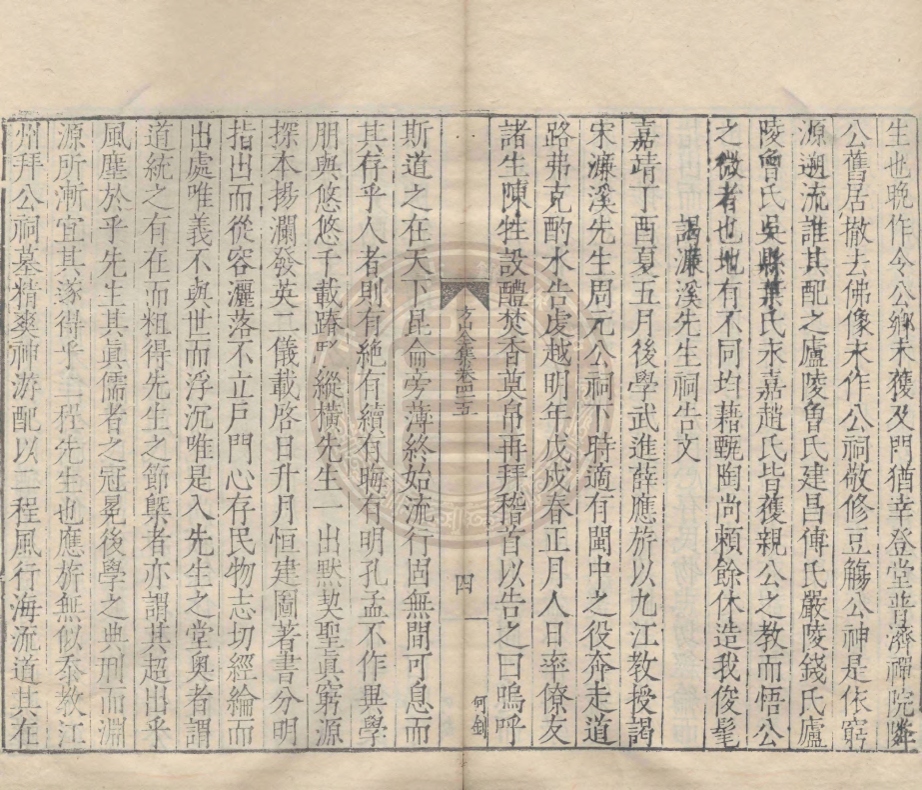 生也晚作令公鄉未獲及門猶幸登堂普濟禪院
公舊居撤去佛像末作公祠敬修豆觴公神是依窮
源遡流誰其配之盧陵魯氏建昌傅氏嚴陵錢氏廬
陵曾氏吳縣葉氏永嘉趙氏皆獲親公之教而悟公
之微者也地有不同均藉甄陶尚賴餘休造我俊髦
謁濂溪先生祠告文
嘉靖丁酉夏五月後學武進薛應旂以九江教授謁
宋濂溪先生周元公祠下時適有閩中之役奔走道
路弗克酌水告虔越明年戊戌春正月人日率僚友
諸生陳牲設醴焚香奠帛再拜稽首以告之曰嗚呼
方山全集卷四十五
四
何鈿
斯道之在天下昆侖旁薄終始流行固無間可息而
其存乎人者則有絶有續有晦有明孔孟不作異學
朋興悠悠千載踳駁縱橫先生一出默契聖真窮源
探本揚瀾發英二儀載啓日升月恒建圖著書分明
指出而從容灑落不立戶門心存民物志切經綸而
出處唯義不與世而浮沉唯是入先生之堂奧者謂
道統之有在而粗得先生之節槩者亦謂其超出乎
風塵於乎先生其眞儒者之冠冕後學之典刑而淵
源所漸宜其遂得乎二程先生也應旂無似忝教江
州拜公祠墓精爽神游配以二程風行海流道其在